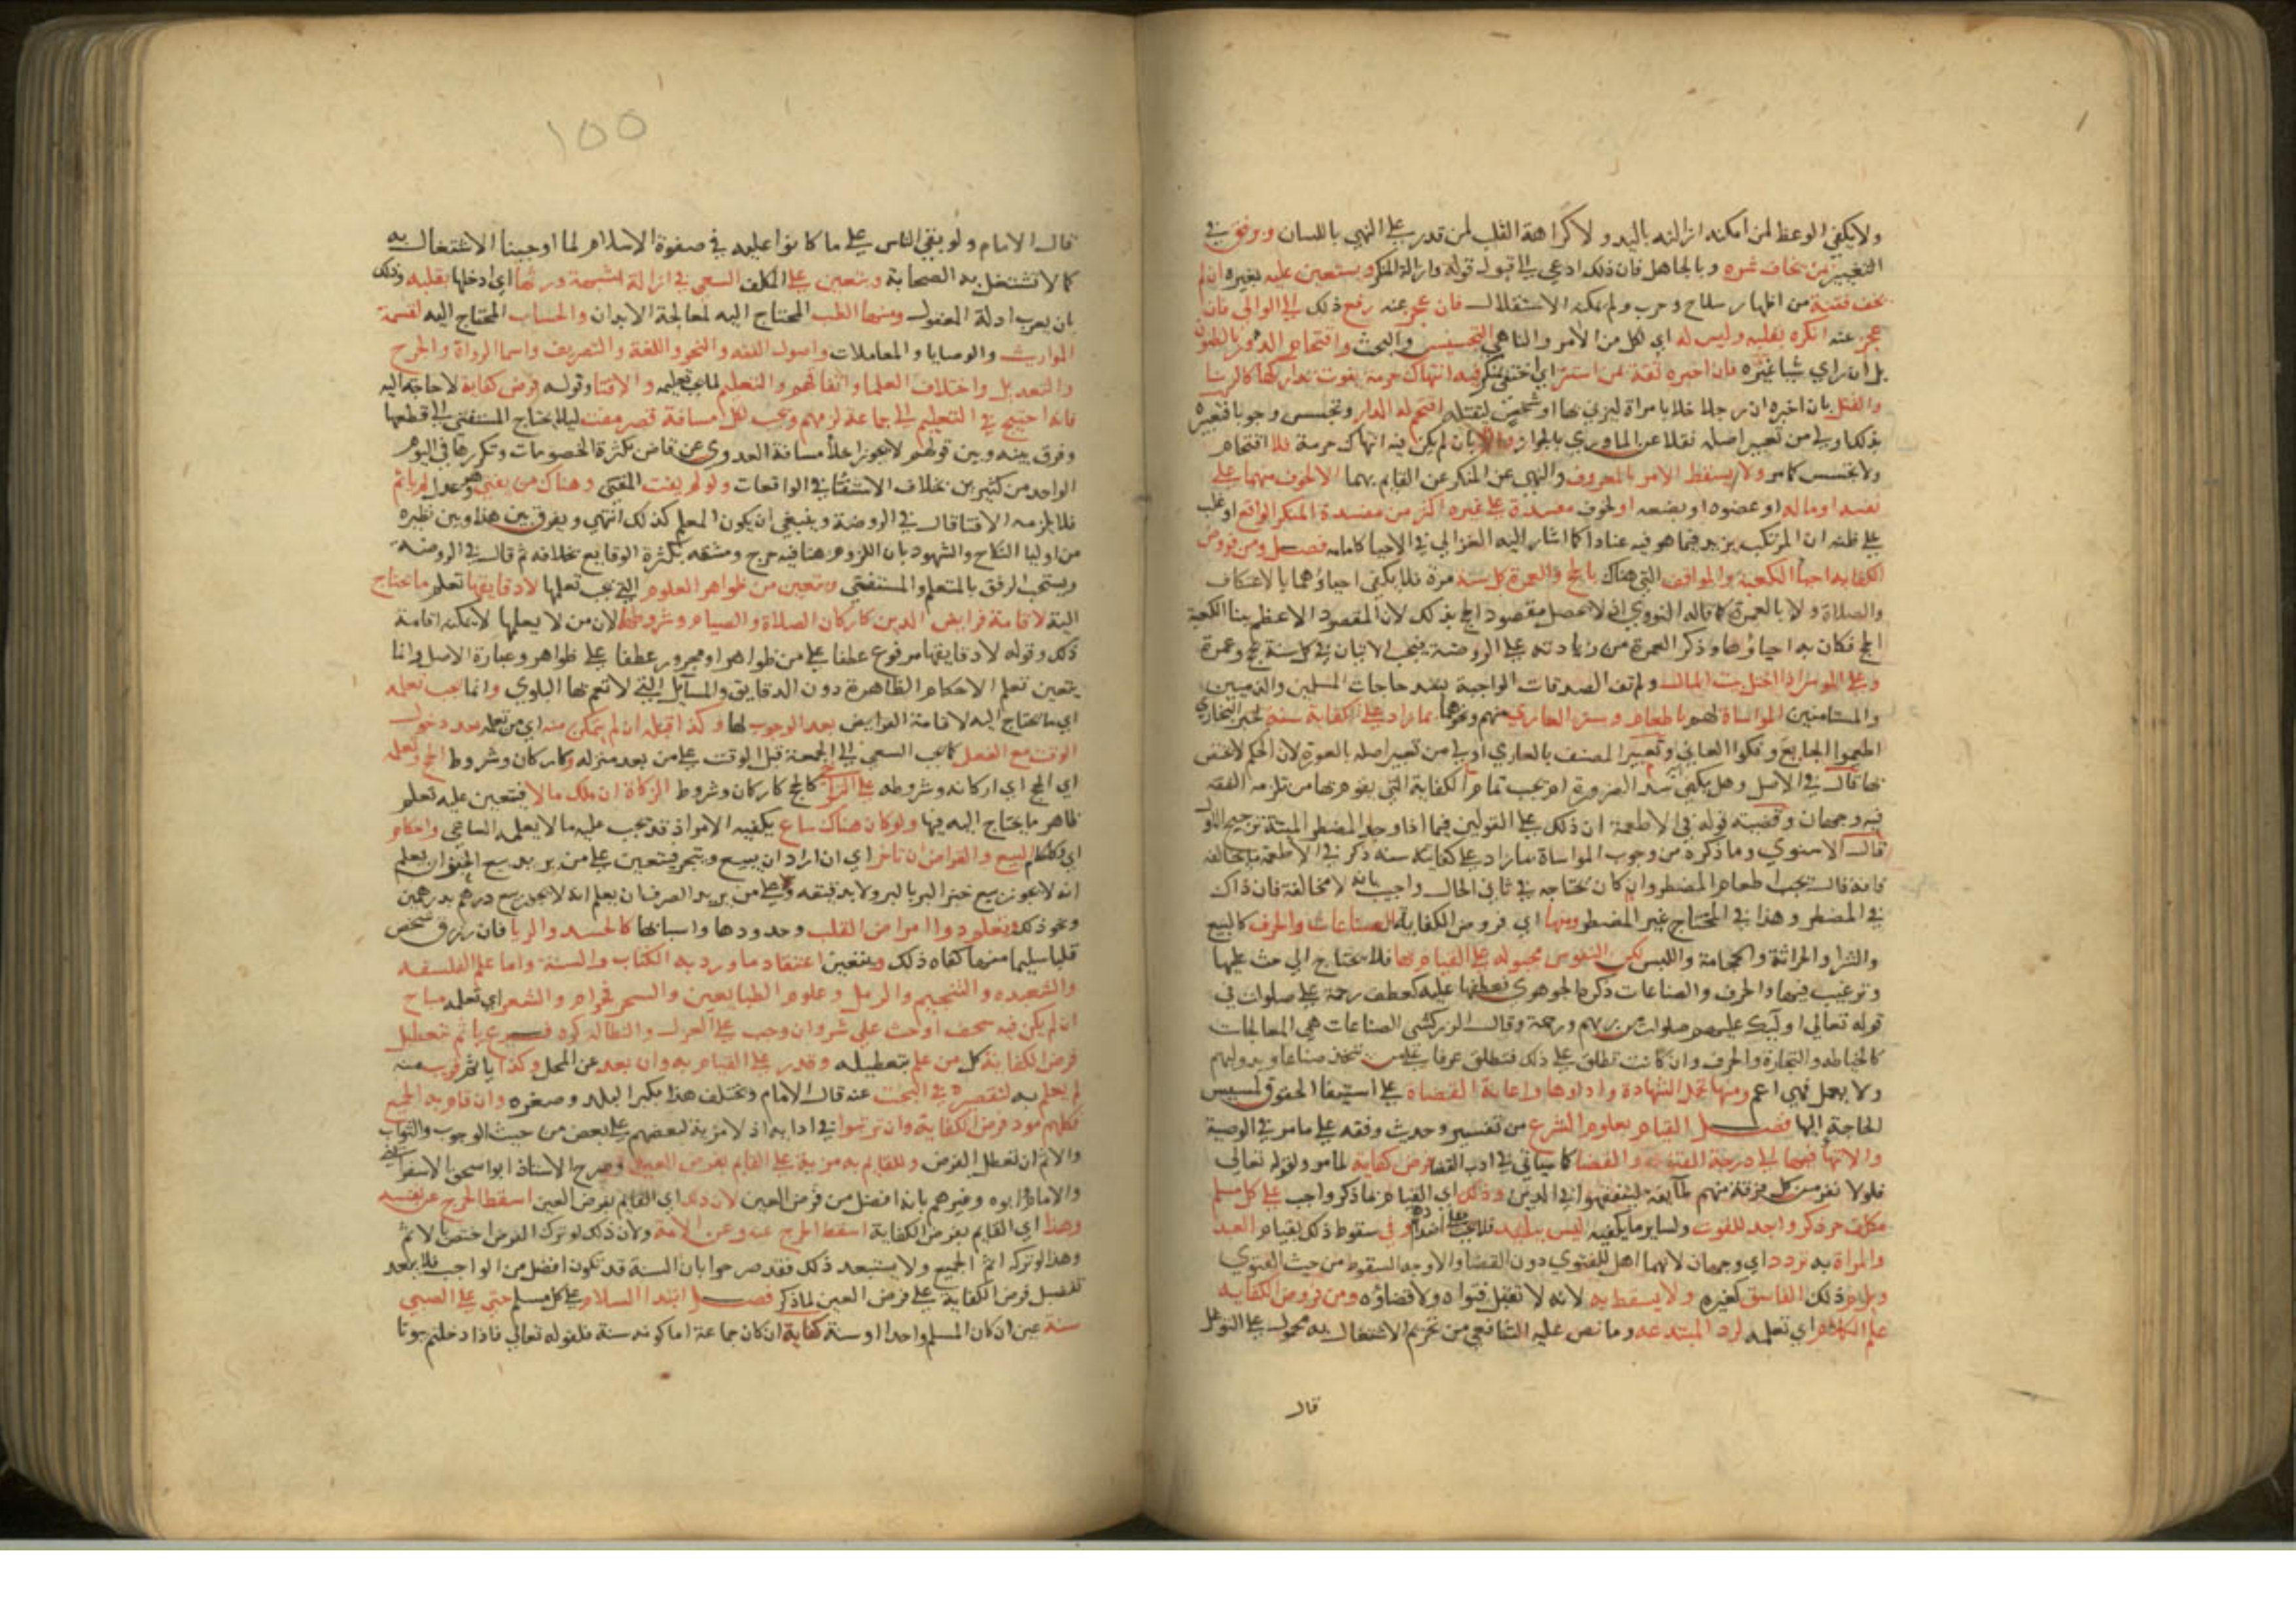 ولا يكفي الوعظ لمن امكنه ازالته باليد ولا كراهة القلب لمن قدر على النهي باللسان ويرفق في
التغيير بمن يخاف شره وبالجاهل فان ذلك ادعى الى قبول قوله وازالة المنكر ويستعين عليه بغيره ان لم
يخف فتنة من اظهار سلاح وحرب ولم يمكنه الاستقلال فان عجز عنه رفع ذلك الى الوالي فان
عجز عنه انكره بقلبه وليس له اي لكل من الآمر والناهي التجسيس والبحث واقتحام الدور بالظنون
بل ان راي شيا غيره فان اخبره ثقة بمن استتر اي اختفى بمنكر فيه انتهاك حرمة يفوت تداركها كالزنا
والقتل بان اخبره ان رجلا خلا بامراة ليزني بها او شخص ليقتله اقتحم له الدار وتجسس وجوبا فتعبيره
بذلك اولى من تعبير اصله نقلا عن الماوردي بالجواز والا بان لم يكن فيه انتهاك حرمة فلا اقتحام
ولا تجسس كما مر ولا يسقط الامر بالمعروف والنهي عن المنكر عن القايم بهما الا لخوف منهما على
نفسه او ماله او عضوه او بضعه او لخوف مفسدة على غيره اكثر من مفسدة المنكر الواقع او غلب
على ظنه ان المرتكب يزيد فيما هو فيه عنادا كما اشار اليه الغزالي في الاحيا كامامه فصل ومن فروض
الكفاية احيا الكعبة والمواقف التي هناك بالحج والعمرة كل سنة مرة فلا يكفي احياؤهما بالاعتكاف
والصلاة ولا بالعمرة كما قاله النووي اذ لا يحصل مقصود الحج بذلك لان المقصود الاعظم ببنا الكعبة
الحج فكان به احياؤها وذكر العمرة من زيادته على الروضة فيجب الاتيان في كل سنة بحج وعمرة
وعلى الموسر اذا اختل بيت المال ولم تف الصدقات الواجبة بسد حاجات المسلمين والذميين
والمستامنين المواساة لهم باطعام وستر العاري منهم ونحوهما بما زاد على كفاية سنة لخبر البخاري
اطعموا الجايع وفكوا العاني وتعبير المصنف بالعاري اولى من تعبير اصله بالعورة لان الحكم لا يختص
بها قال في الاصل وهل يكفي سد الضرورة ام يجب تمام الكفاية التي يقوم بها من تلزمه النفقة
فيه وجهان وقضية قوله في الاطعمة ان ذلك على القولين فيما اذا وجد المضطر الميتة ترجيح الاول
قال الاسنوي وما ذكره من وجوب المواساة بما زاد على كفاية سنة ذكر في الاطعمة ما يخالفه
فانه قال يجب اطعام المضطر وان كان يحتاجه في ثاني الحال واجيب بانه لا مخالفة فان ذاك
في المضطر وهذا في المحتاج غير المضطر ومنها اي فروض الكفاية الصناعات والحرف كالبيع
والشرا والحراثة والحجامة واللبس لكن النفوس مجبولة على القيام بها فلا يحتاج الى حث عليها
وترغيب فيها والحرف والصناعات ذكره الجوهري فعطفها عليه كعطف رحمة على صلوات في
قوله تعالى اوليك عليهم صلوات من ربهم ورحمة وقال الزركشي الصناعات هي المعالجات
كالخياطة والتجارة والحرف وان كانت تطلق على ذلك فتطلق عرفا على من يتخذ صناعا ويدولبهم
ولا يعمل فهي اعم ومنها تحمل الشهادة واداؤها واعانة القضاة على استيفا الحقوق لمسيس
الحاجة اليها فصل القيام بعلوم الشرع من تفسير وحديث وفقه على ما مر في الوصية
والانتها فيها الى درجة الفتوى والقضا كما سياتي في ادب القضا فرض كفاية لما مر ولقوله تعالى
فلولا نفر من كل فرقة منهم طايفة ليتفقهوا في الدين وذلك اي القيام بما ذكر واجب على كل مسلم
مكلف حر ذكر واجد للقوت ولساير ما يكفيه ليس ببليد فلا يجب على اضدادهم وفي سقوط ذلك بقيام العبد
والمراة به تردد اي وجهان لانهما اهل للفتوى دون القضا والاوجه السقوط من حيث الفتوى
ويلزم ذلك الفاسق كغيره ولا يسقط به لانه لا تقبل فتواه ولا قضاؤه ومن فروض الكفاية
علم الكلام اي تعلمه لرد المبتدعة وما نص عليه الشافعي من تحريم الاشتغال به محمول على التوغل
قال
١٥٥
قال الامام ولو بقي الناس على ما كانوا عليه في صفوة الاسلام لما اوجبنا الاشتغال به
كما لا تشتغل به الصحابة ويتعين على المكلف السعي في ازالة شبهة ورثها اي ادخلها بقلبه وذلك
بان يعرف ادلة المعقول ومنها الطب المحتاج اليه لمعالجة الابدان والحساب المحتاج اليه لقسمة
المواريث والوصايا والمعاملات واصول الفقه والنحو واللغة والتصريف واسما الرواة والجرح
والتعديل واختلاف العلما واتفاقهم والتعليم لما يجب تعليمه والافتا وقوله فرض كفاية لا حاجة اليه
فاذا احتيج في التعليم الى جماعة لزمهم ويجب لكل مسافة قصر مفت ليلا يحتاج المستفتي الى قطعها
وفرق بينه وبين قولهم لا يجوز اخلا مسافة العدوى عن قاض بكثرة الخصومات وتكررها في اليوم
الواحد من كثيرين بخلاف الاستفتا في الواقعات ولو لم يفت المفتي وهناك من يفتي وهو عدل لم ياثم
فلا يلزمه الافتا قال في الروضة وينبغي ان يكون المعلم كذلك انتهى ويفرق بين هذا وبين نظيره
من اوليا النكاح والشهود بان اللزوم هنا فيه حرج ومشقة بكثرة الوقايع بخلافه ثم قال في الروضة
ويستحب الرفق بالمتعلم والمستفتي ويتعين من ظواهر العلوم التي يجب تعلمها لا دقايقها تعلم ما يحتاج
اليه لاقامة فرايض الدين كاركان الصلاة والصيام وشروطهما لان من لا يعلمها لا يمكنه اقامة
ذلك وقوله لا دقايقها مرفوع عطفا على من ظواهر او مجرور عطفا على ظواهر وعبارة الاصل وانما
يتعين تعلم الاحكام الظاهرة دون الدقايق والمسايل التي لا تعم بها البلوي وانما يجب تعلمه
اي ما يحتاج اليه لاقامة الفرايض بعد الوجوب لها وكذا قبله ان لم يتمكن منه اي من تعلمه بعد دخول
الوقت مع الفعل كما يجب السعي الى الجمعة قبل الوقت على من بعد منزله وكاركان وشروط الحج وتعلمه
اي الحج اي اركانه وشروطه على التراخي كالحج كاركان وشروط الزكاة ان ملك مالا فيتعين عليه تعلم
ظاهر ما يحتاج اليه فيها ولو كان هناك ساع يكفيه الامر اذ قد يجب عليه ما لا يعلمه الساعي واحكام
اي وكاحكام البيع والقراض ان تاجر اي ان اراد ان يبيع ويتجر فيتعين على من يريد بيع الخبز ان يعلم
انه لا يجوز بيع خبز البر بالبر ولا بدقيقه وعلى من يريد الصرف ان يعلم انه لا يجوز بيع درهم بدرهمين
ونحو ذلك وتعلم دوا امراض القلب وحدودها واسبابها كالحسد والريا فان رزق شخص
قلبا سليما منها كفاه ذلك ويتعين اعتقاد ما ورد به الكتاب والسنة واما علم الفلسفة
والشعبده والتنجيم والرمل وعلوم الطبايعين والسحر فحرام والشعر اي تعلمه مباح
ان لم يكن فيه سخف او حث على شر وان وجب على الغزل والبطالة كره فرع ياثم بتعطيل
فرض الكفاية كل من علم بتعطيله وقدر على القيام به وان بعد عن المحل وكذا ياثم قريب منه
لم يعلم به لتقصيره في البحث عنه قال الامام ويختلف هذا بكبر البلد وصغره وان قام به الجميع
فكلهم مود فرض الكفاية وان ترتبوا في ادايه اذ لا مزية لبعضهم على بعض من حيث الوجوب والثواب
والاثم ان تعطل الفرض وللقايم به مزية على القايم بفرض العين وصرح الاستاذ ابو اسحق الاسفرايني
والامام وابوه وغيرهم بانه افضل من فرض العين لان ذاك اي القايم بفرض العين اسقط الحرج عن نفسه
وهذا اي القايم بفرض الكفاية اسقط الحرج عنه وعن الامة ولان ذلك لو ترك الفرض اختص بالاثم
وهذا لو تركه اثم الجميع ولا يستبعد ذلك فقد صرحوا بان السنة قد تكون افضل من الواجب فلا يبعد
تفضيل فرض الكفاية على فرض العين لما ذكر فصل ابتدا السلام على كل مسلم حتى على الصبي
سنة عين ان كان المسلم واحدا او سنة كفاية ان كان جماعة اما كونه سنة فلقوله تعالى فاذا دخلتم بيوتا